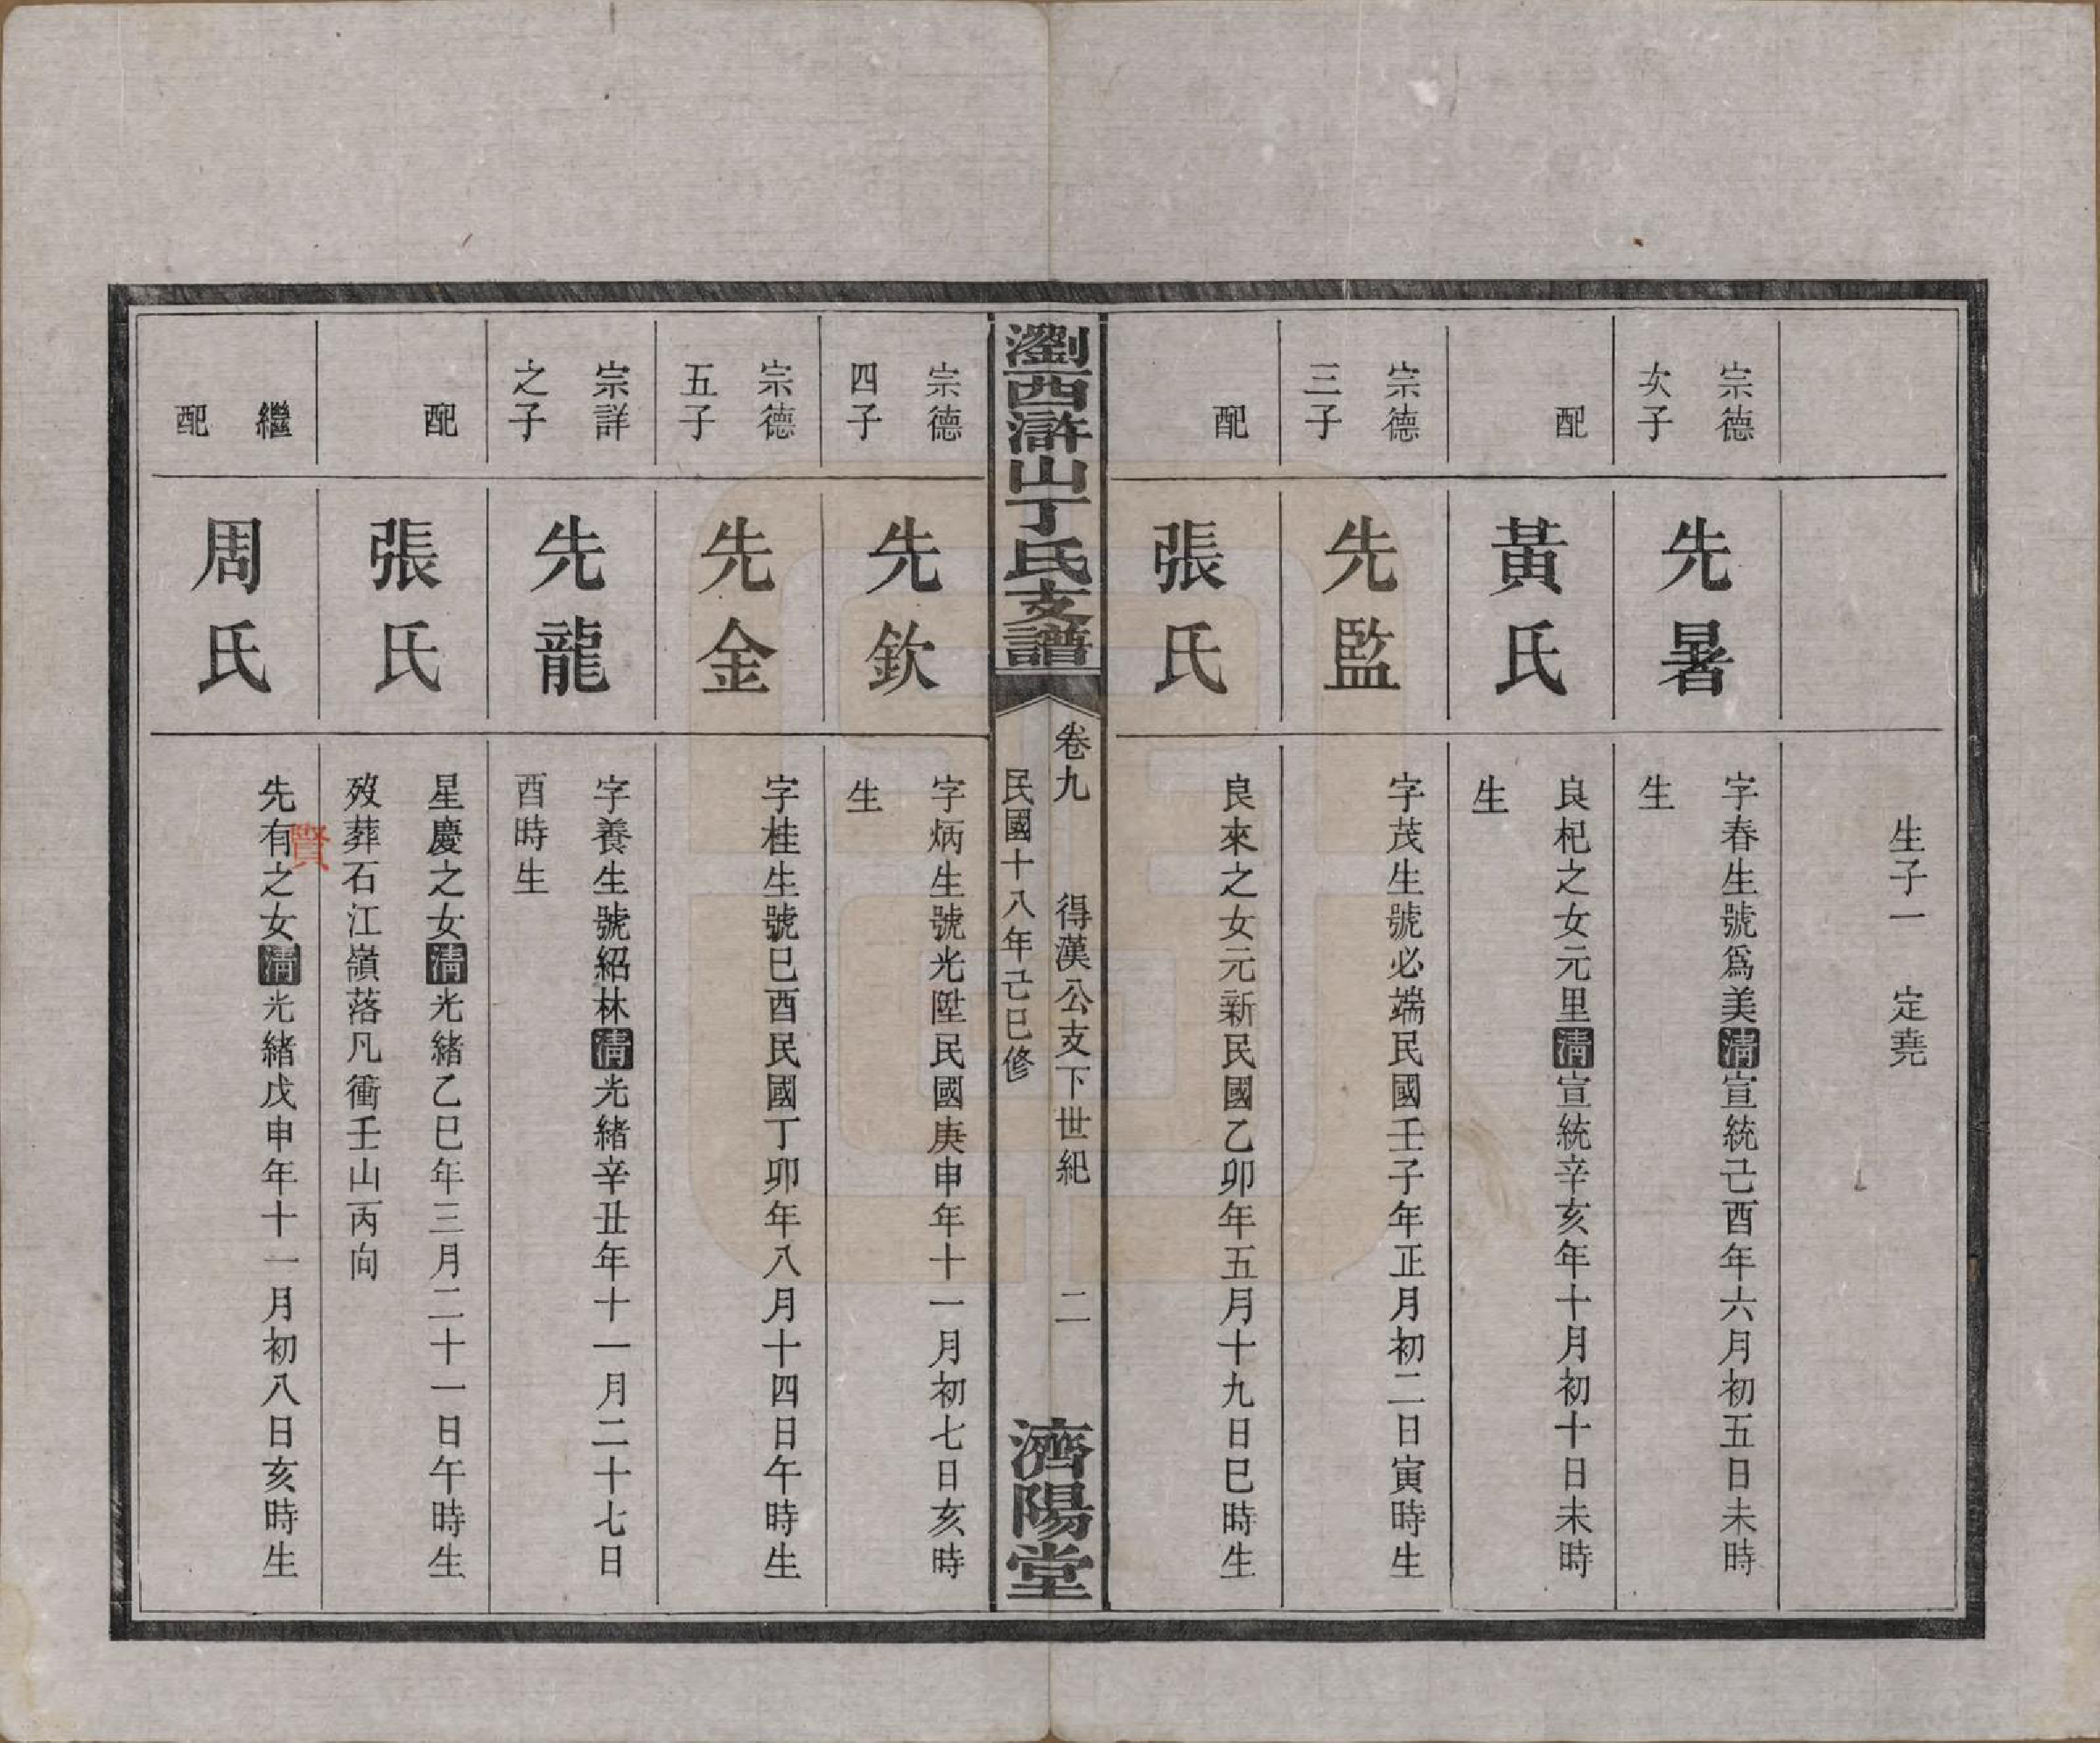 生子一　定堯
宗德
次子
先暑
字春生號爲美清宣統己酉年六月初五日未時
生
配
黃氏
良杞之女元里清宣統辛亥年十月初十日未時
生
宗德
三子
先監
字茂生號必端民國壬子年正月初二日寅時生
配
張氏
良來之女元新民國乙卯年五月十九日巳時生
瀏西滸山丁氏支譜
卷九　得漢公支下世紀　二
民國十八年己巳修
濟陽堂
宗德
四子
先欽
字炳生號光陞民國庚申年十一月初七日亥時
生
宗德
五子
先金
字桂生號巳酉民國丁卯年八月十四日午時生
宗詳
之子
先龍
字養生號紹林清光緒辛丑年十一月二十七日
酉時生
配
張氏
星慶之女清光緒乙巳年三月二十一日午時生
歿葬石江嶺落凡衝壬山丙向
繼
配
周氏
先有之女清光緒戊申年十一月初八日亥時生
賢